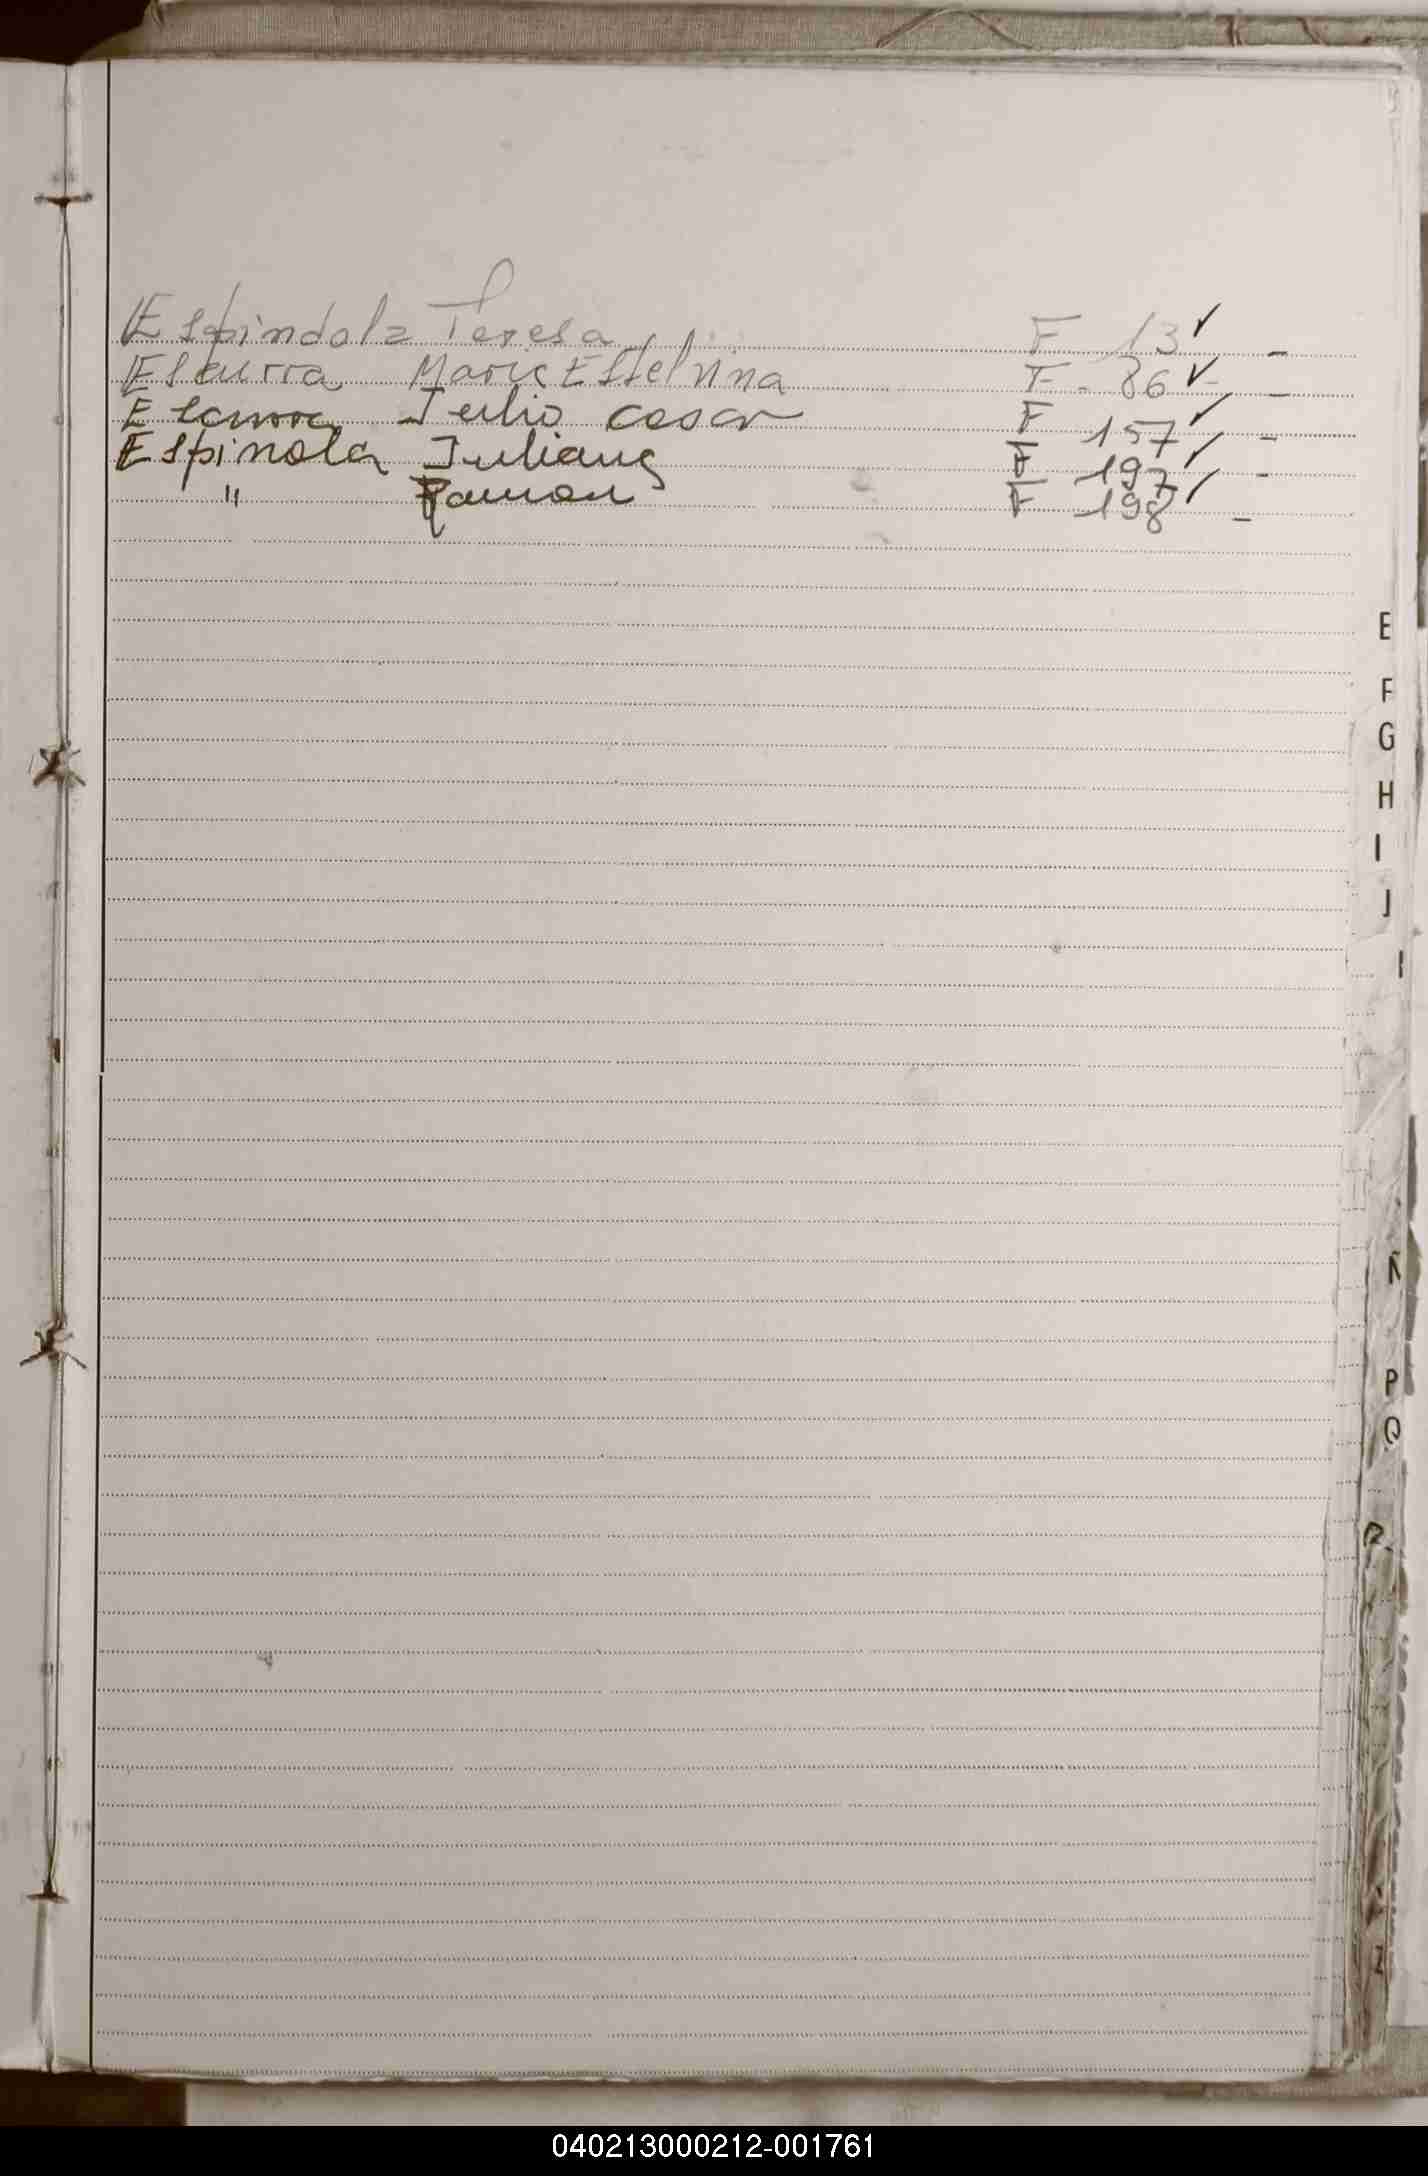 Espindola Teresa F 13 ✓ -
Escurra Maria Estelvina F - 86 ✓ -
Julio Cesar F 157 ✓ -
Espinola Juliana F 197 ✓ -
" Ramon F 198 ✓ -
E
F
G
H
I
J
Ñ
P
Q
R
040213000212-001761